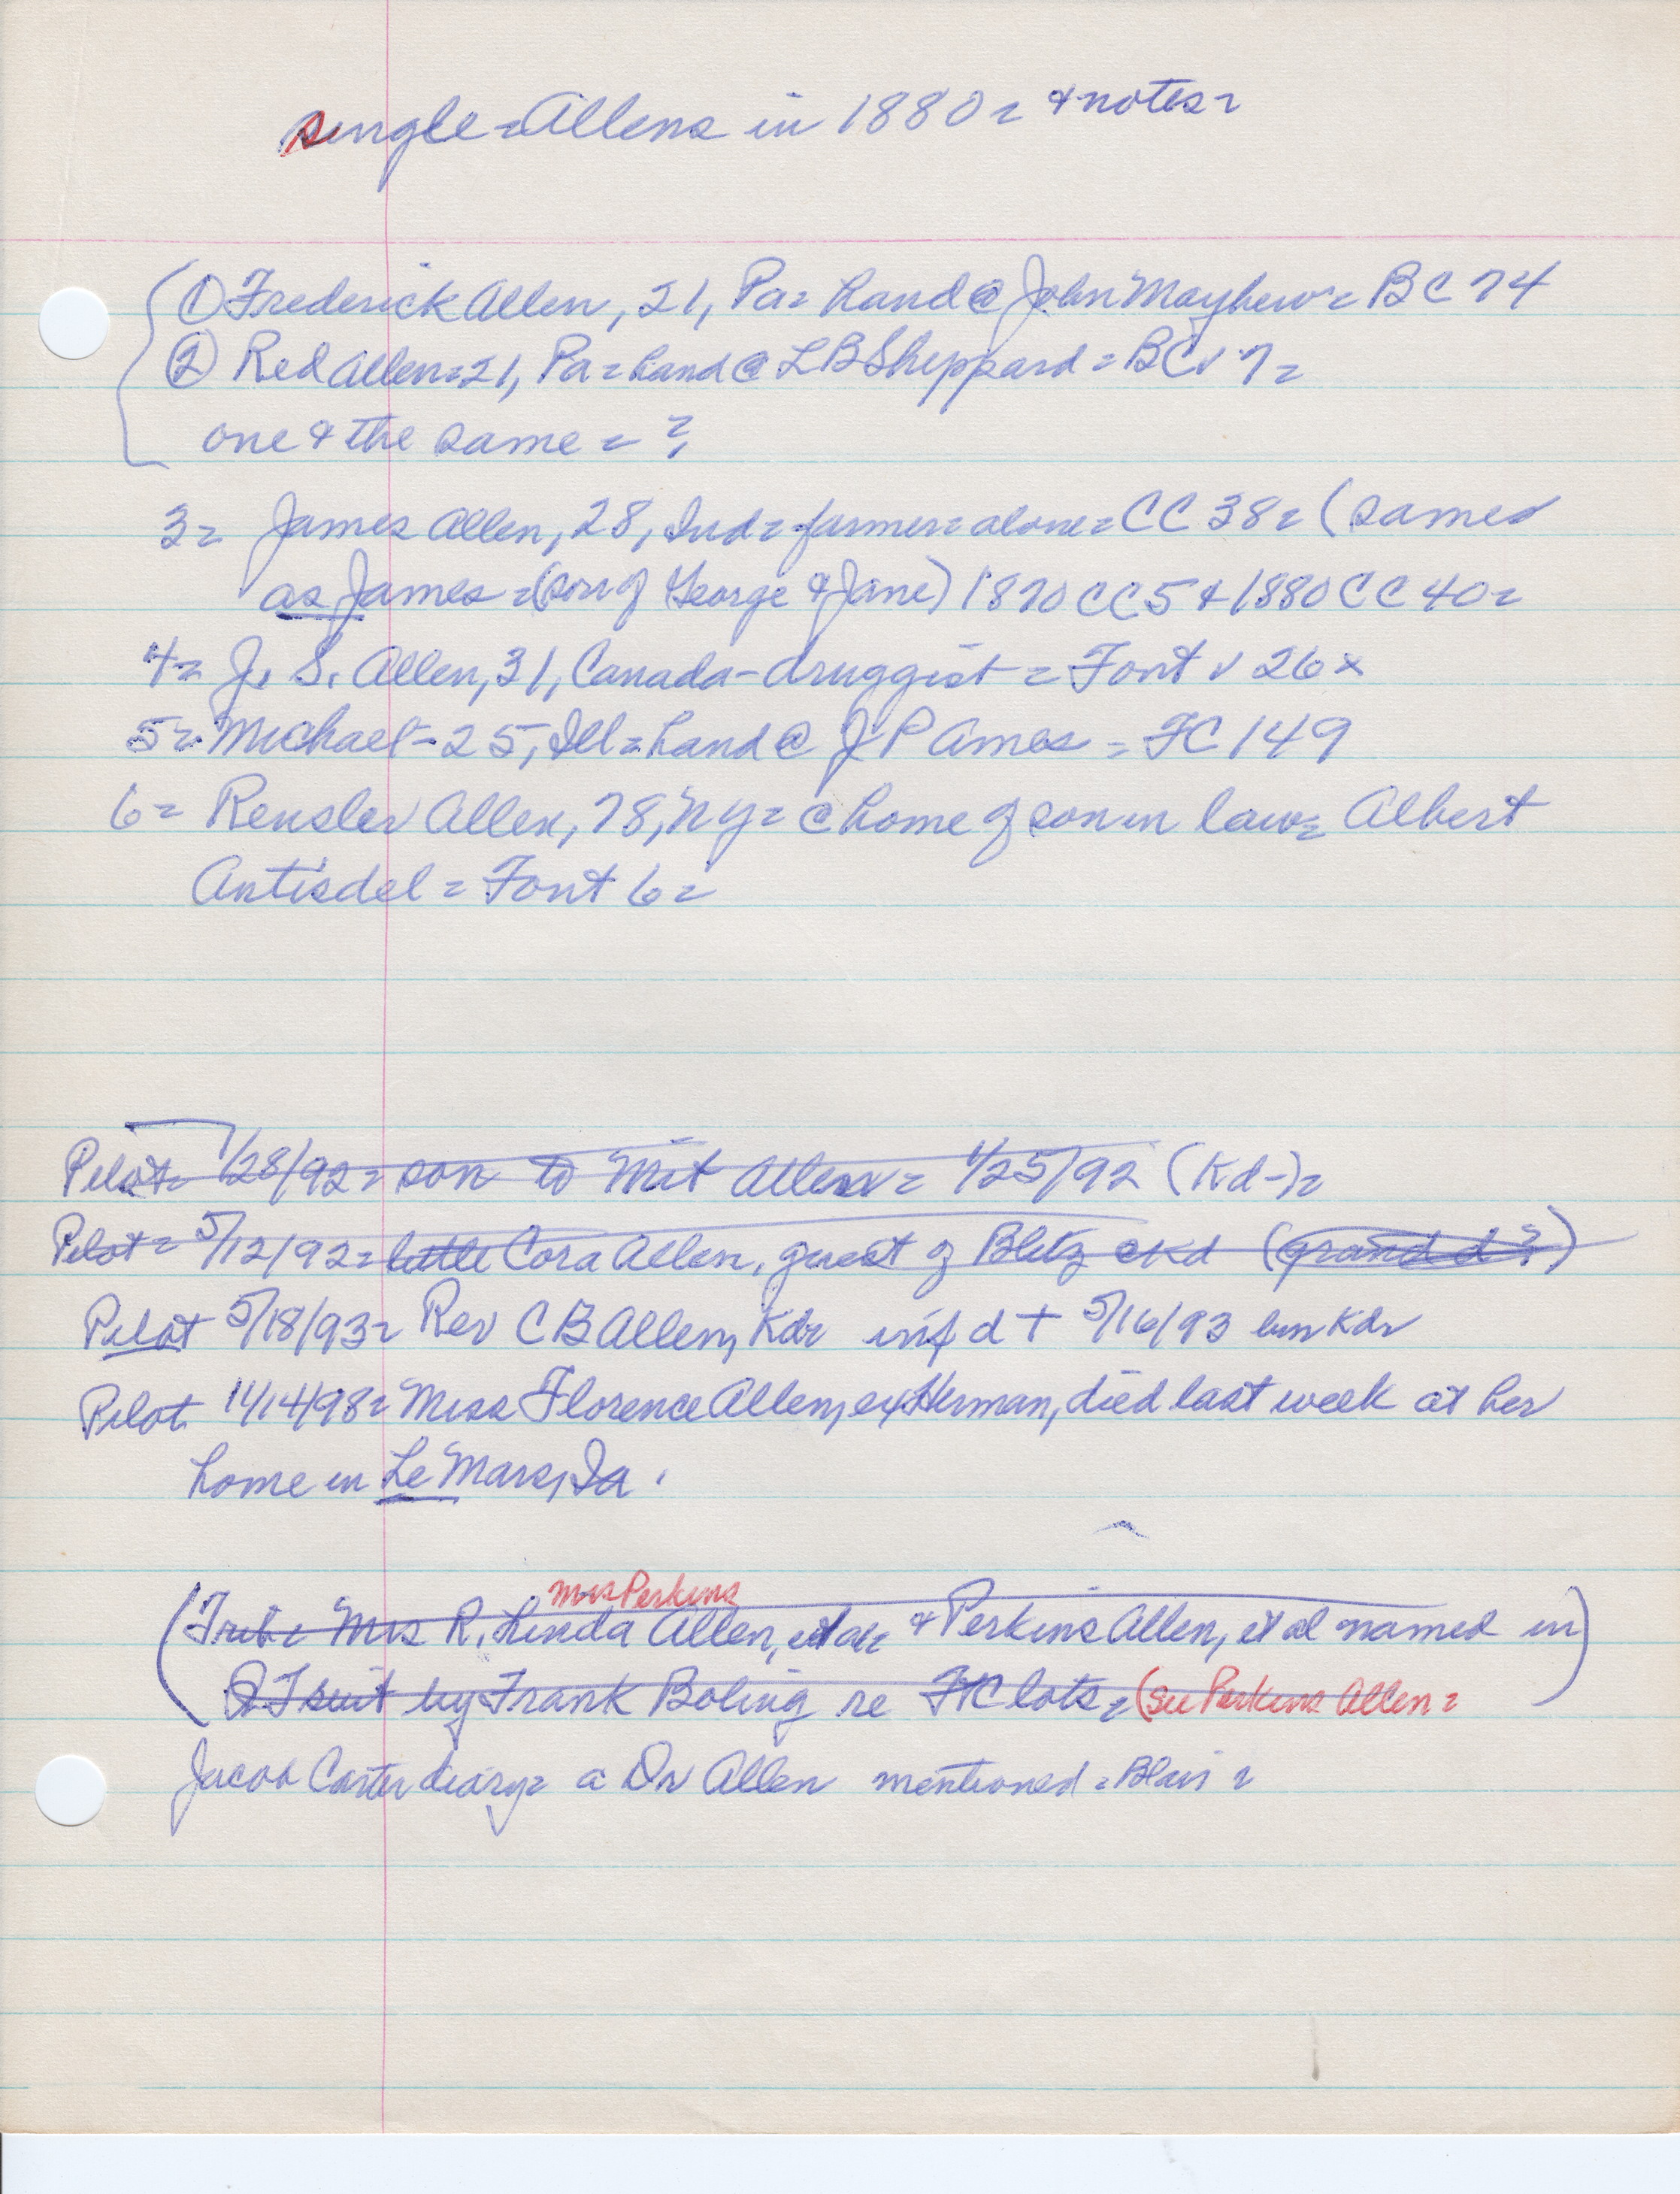 single = Allens in 1880 = & notes =
① Frederick Allen, 21, Pa = hand @ John Mayhew = BC 74
② Red Allen = 21, Pa = hand @ L B Sheppard = BCv 7 =
one & the same = ?
3 = James Allen, 28, Ind = farmer = alone = CC 38 = (same
as James = (son of George & Jane) 1870 CC5 & 1880 CC 40 =
4 = J. S. Allen, 31, Canada - druggist = Font v 26 x
5 = Michael - 25, Ill = hand @ J P Ames = FC 149
6 = Rensler Allen, 78, NY = @ home of son in law = Albert
Antisdel = Font 6 =
Pilot = 1/28/92 = son to Mit Allen = 1/25/92 (Kd-) =
Pilot = 5/12/92 = little Cora Allen, guest of Bletz @ Kd (grand d?)
Pilot 5/18/93 = Rev C B Allen, Kdr inf d + 5/16/93 bur Kdr
Pilot 1/14/98 = Miss Florence Allen, ex Herman, died last week at her
home in Le Mars, Ia.
mrs Perkins
(Trib = Mrs R. Linda Allen, et al = & Perkins Allen, et al named in)
QT suit by Frank Boling re FtC lots = (see Perkins Allen =
Jacob Carter diary = a Dr Allen mentioned = Blair =